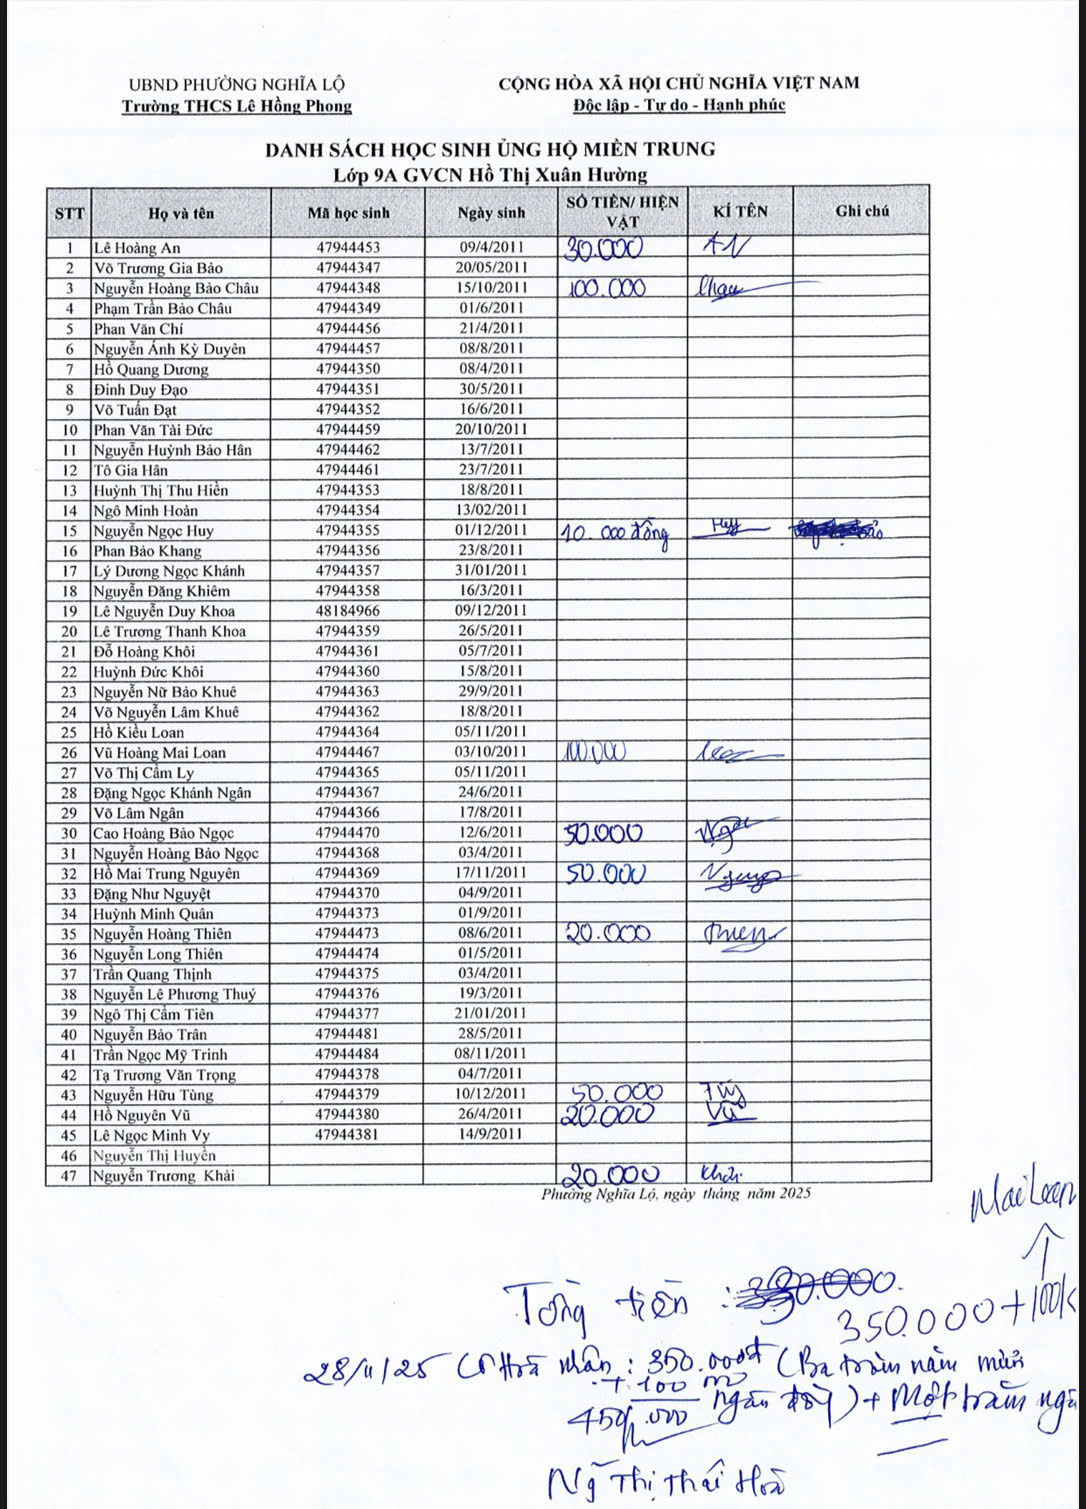 UBND PHƯỜNG NGHĨA LỘ
Trường THCS Lê Hồng Phong
CỘNG HÒA XÃ HỘI CHỦ NGHĨA VIỆT NAM
Độc lập - Tự do - Hạnh phúc
DANH SÁCH HỌC SINH ỦNG HỘ MIỀN TRUNG
Lớp 9A GVCN Hồ Thị Xuân Hường
STT Họ và tên Mã học sinh Ngày sinh SỐ TIỀN/ HIỆN VẬT KÍ TÊN Ghi chú
1 Lê Hoàng An 47944453 09/4/2011 30.000 AN
2 Võ Trương Gia Bảo 47944347 20/05/2011
3 Nguyễn Hoàng Bảo Châu 47944348 15/10/2011 100.000 Chau
4 Phạm Trần Bảo Châu 47944349 01/6/2011
5 Phan Văn Chí 47944456 21/4/2011
6 Nguyễn Ánh Kỳ Duyên 47944457 08/8/2011
7 Hồ Quang Dương 47944350 08/4/2011
8 Đinh Duy Đạo 47944351 30/5/2011
9 Võ Tuấn Đạt 47944352 16/6/2011
10 Phan Văn Tài Đức 47944459 20/10/2011
11 Nguyễn Huỳnh Bảo Hân 47944462 13/7/2011
12 Tô Gia Hân 47944461 23/7/2011
13 Huỳnh Thị Thu Hiền 47944353 18/8/2011
14 Ngô Minh Hoàn 47944354 13/02/2011
15 Nguyễn Ngọc Huy 47944355 01/12/2011 10.000 đồng Huy
16 Phan Bảo Khang 47944356 23/8/2011
17 Lý Dương Ngọc Khánh 47944357 31/01/2011
18 Nguyễn Đăng Khiêm 47944358 16/3/2011
19 Lê Nguyễn Duy Khoa 48184966 09/12/2011
20 Lê Trương Thanh Khoa 47944359 26/5/2011
21 Đỗ Hoàng Khôi 47944361 05/7/2011
22 Huỳnh Đức Khôi 47944360 15/8/2011
23 Nguyễn Nữ Bảo Khuê 47944363 29/9/2011
24 Võ Nguyễn Lâm Khuê 47944362 18/8/2011
25 Hồ Kiều Loan 47944364 05/11/2011
26 Vũ Hoàng Mai Loan 47944467 03/10/2011 100.000
27 Võ Thị Cẩm Ly 47944365 05/11/2011
28 Đặng Ngọc Khánh Ngân 47944367 24/6/2011
29 Võ Lâm Ngân 47944366 17/8/2011
30 Cao Hoàng Bảo Ngọc 47944470 12/6/2011 50.000 Ngọc
31 Nguyễn Hoàng Bảo Ngọc 47944368 03/4/2011
32 Hồ Mai Trung Nguyên 47944369 17/11/2011 50.000
33 Đặng Như Nguyệt 47944370 04/9/2011
34 Huỳnh Minh Quân 47944373 01/9/2011
35 Nguyễn Hoàng Thiên 47944473 08/6/2011 20.000 Thien
36 Nguyễn Long Thiên 47944474 01/5/2011
37 Trần Quang Thịnh 47944375 03/4/2011
38 Nguyễn Lê Phương Thuý 47944376 19/3/2011
39 Ngô Thị Cẩm Tiên 47944377 21/01/2011
40 Nguyễn Bảo Trân 47944481 28/5/2011
41 Trần Ngọc Mỹ Trinh 47944484 08/11/2011
42 Tạ Trương Văn Trọng 47944378 04/7/2011
43 Nguyễn Hữu Tùng 47944379 10/12/2011 50.000 Tùng
44 Hồ Nguyên Vũ 47944380 26/4/2011 20.000 Vũ
45 Lê Ngọc Minh Vy 47944381 14/9/2011
46 Nguyễn Thị Huyền
47 Nguyễn Trương Khải 20.000 Khải
Phường Nghĩa Lộ, ngày tháng năm 2025
Mai Loan
Tổng tiền :
350.000 + 100k
28/11/25 Cô Hoà nhận : 350.000đ (Ba trăm năm mươi
+ 100 ngàn đồng) + Một trăm ngà
450.000
Ng Thị Thái Hoà